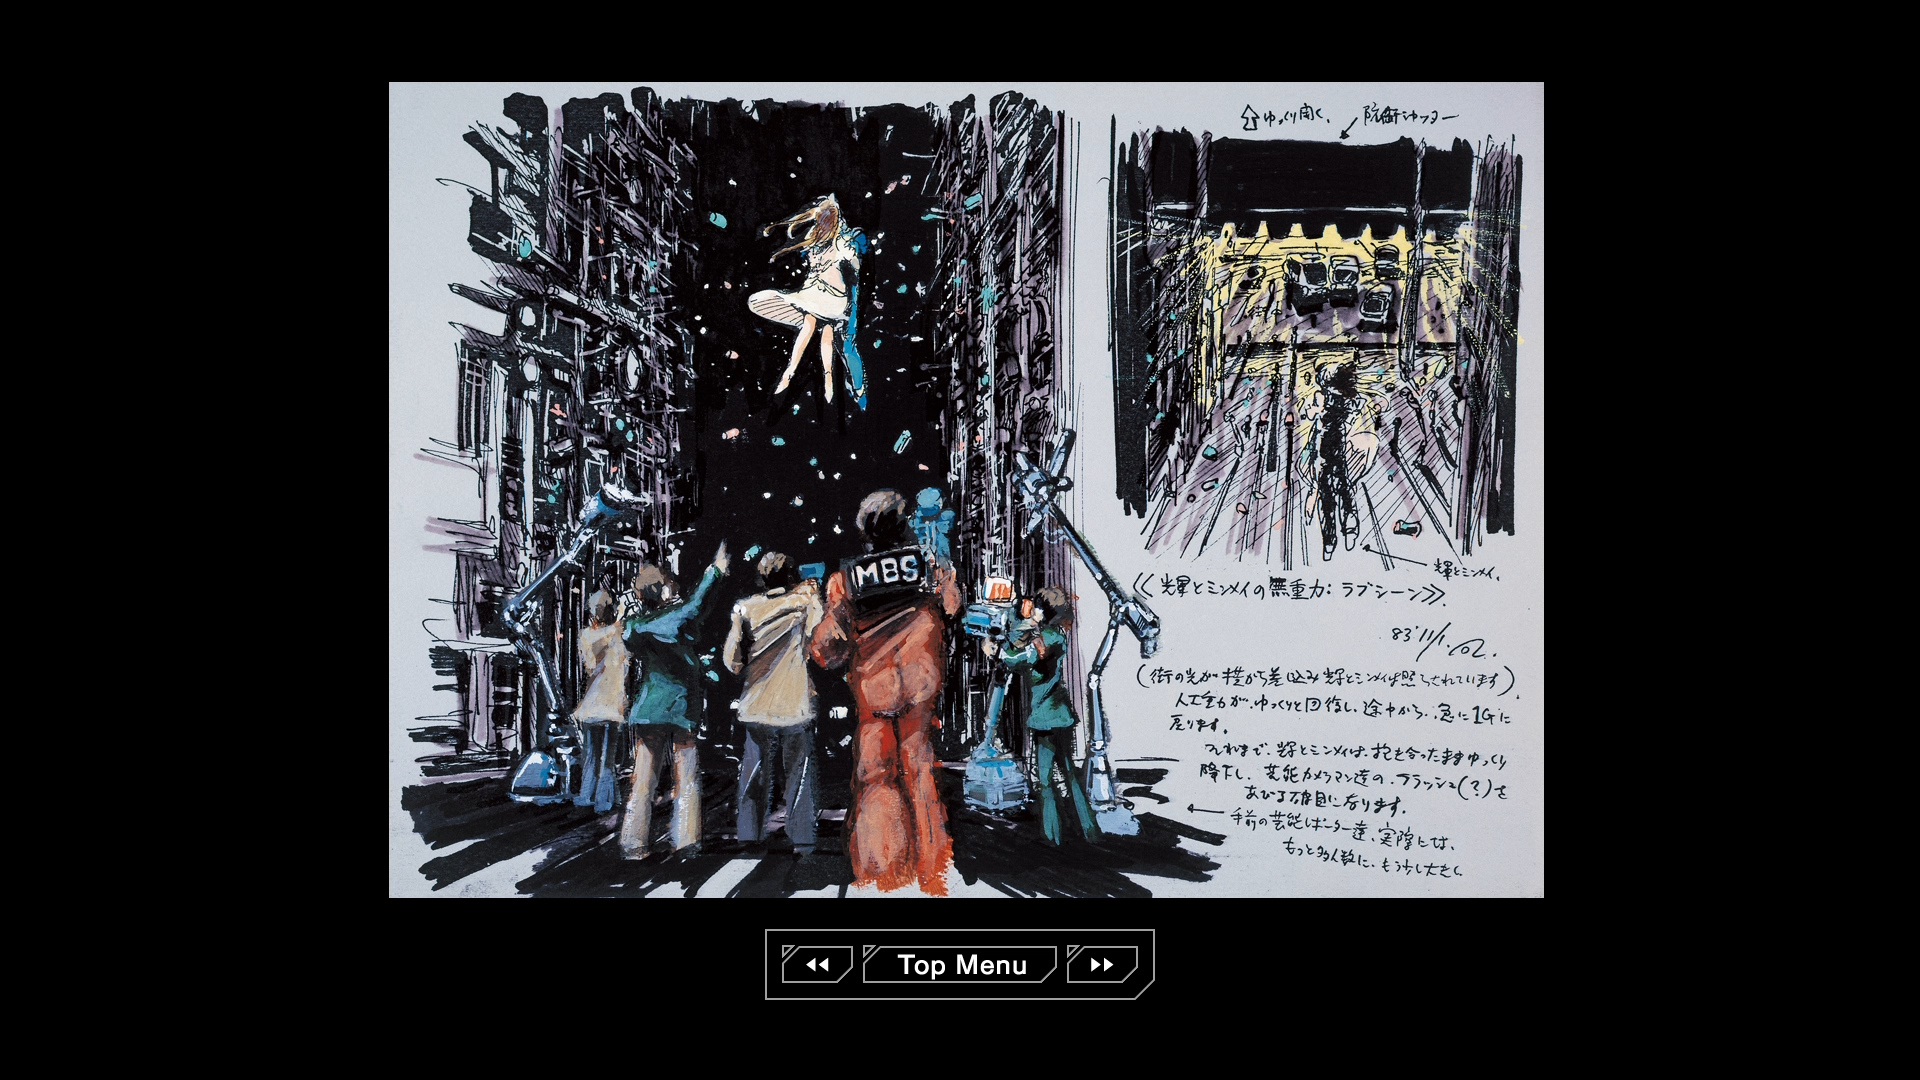 ⇧ゆっくり開く。
防断シャッター
MBS
輝とミンメイ。
《輝とミンメイの無重力:ラブシーン》
83' 11/1.
(街の光が横から差込み輝とミンメイは照らされています)
人工重力が、ゆっくりと回復し、途中から、急に1Gに
戻ります。
それまで、輝とミンメイは、抱き合ったままゆっくり
降下し、芸能カメラマン達の、フラッシュ(?)を
あびる
になります。
←手前の芸能レポーター達、実際には、
もっと多人数に、もう少し大きく
Top Menu